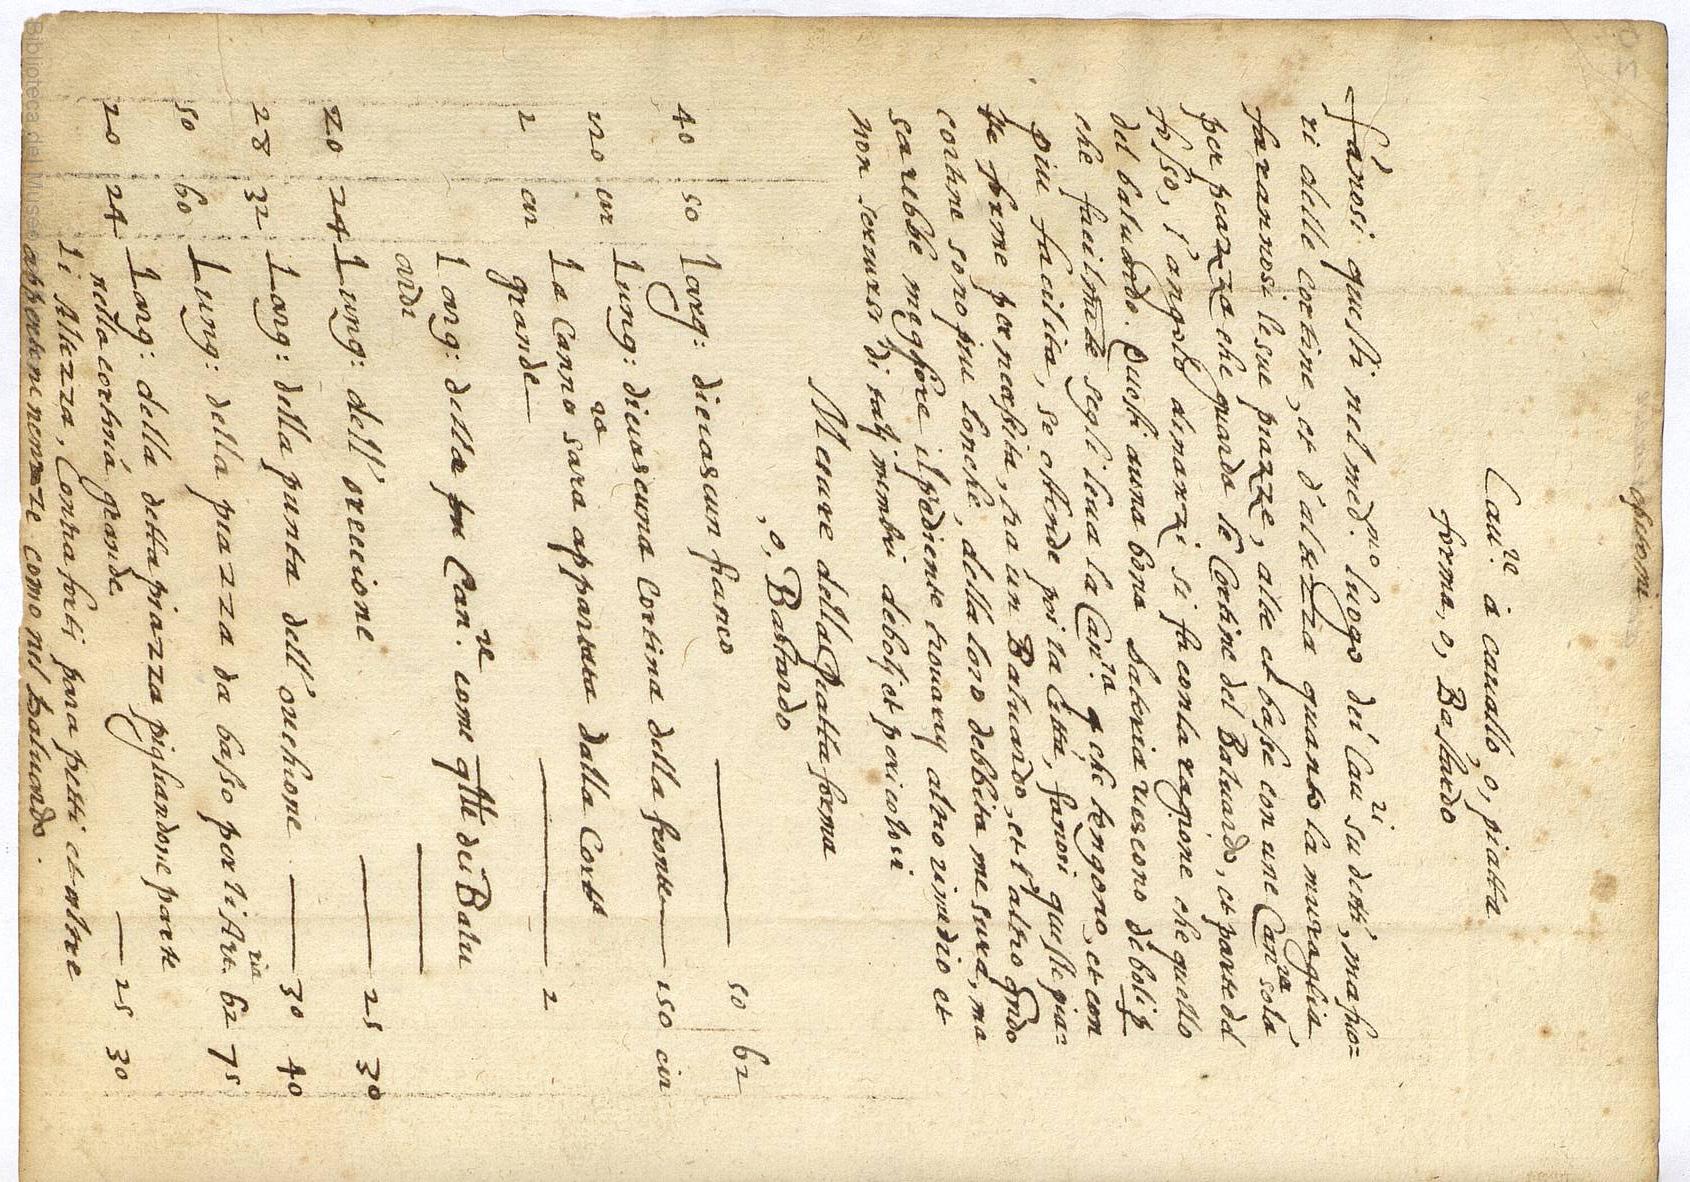 Cau.re à cauallo, o, piatta
forma, o, Bastardo
Fanosi questi nel med.mo luogo dei Cau.ri su detti, ma fuo=
ri delle cortine, et d'altezza quanto la muraglia
farannosi le sue piazze, alte et basse con une Can.ra sola
per piazza che guarda le Cortine del Baluardo, et parte del
fosso, l'angolo dinanzi si fa con la ragione che quello
del baluardo. Questi anno bona
che facilm.te segli leua la Can.ra che tengono, et con
piu facilita, se ofende poi la Città, fanosi queste pia=
te forme per necessita, tra un Baluardo, et l'altro q.ndo
cortine sono piu longhe, della loro debbita mesura, ma
sarebbe megliore ispediente trouarij altro rimedio et
non seruirsi di talj membri debolj et pericolosi
Mesure della Piatta forma
, o, Bastardo
40 50 Larg: di ciascun fianco 50 62
120 cir Lung: di ciascuna Cortina della fronte 150 cir
2 cir La Can.ra sara appartata dalla Cort.a
grande 2
Larg: della Can.re come q.lle dei Balu
ardi
20 24 Lung: dell' orecione 25 30
28 32 Larg: della punta dell' orechione 30 40
50 60 Lung: della piazza da basso per li Art.ria 62 75
20 24 Larg: della detta piazza pigliandone parte
nella cortina grande 25 30
Li Altezza, Contraforti para petti et altre
appertinennze como nel baluardo.
Biblioteca del Museo